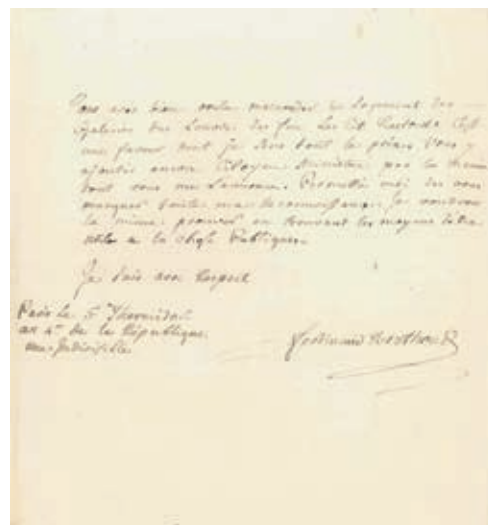 Vous avez bien voulu m'accorder le Logement des
Galeries du Louvre du feu
une faveur dont je sens tout le prix. Vous y
ajoutez encore Citoyen Ministre par la
dont vous me L'annoncez. Permettez moi de vous
marquer toute ma Reconnaissance. Je voudrais
la mieux prouver en trouvant les moyens d'être
utile a la chose Publique.
Je suis avec Respect
Paris le 5 Thermidor
an 4e de la République
une Indivisible
Ferdinand Berthoud